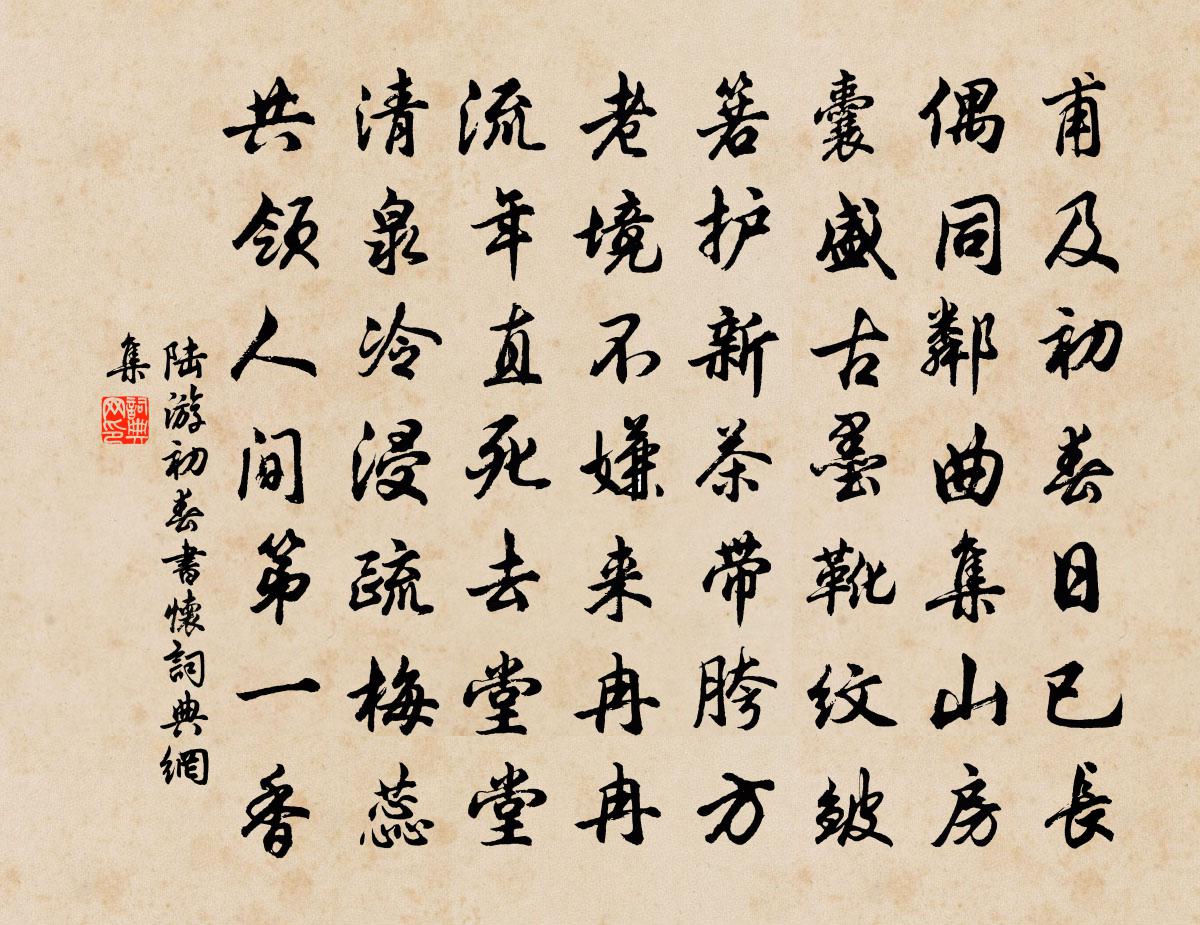 甫及初春日已長
偶同鄰曲集山房
囊盛古墨靴紋皴
箬护新茶带胯方
老境不嫌来冉冉
流年直死去堂堂
清泉冷浸疏梅蕊
共领人间第一香
陆游初春書懷詞典網
集
詞典网印